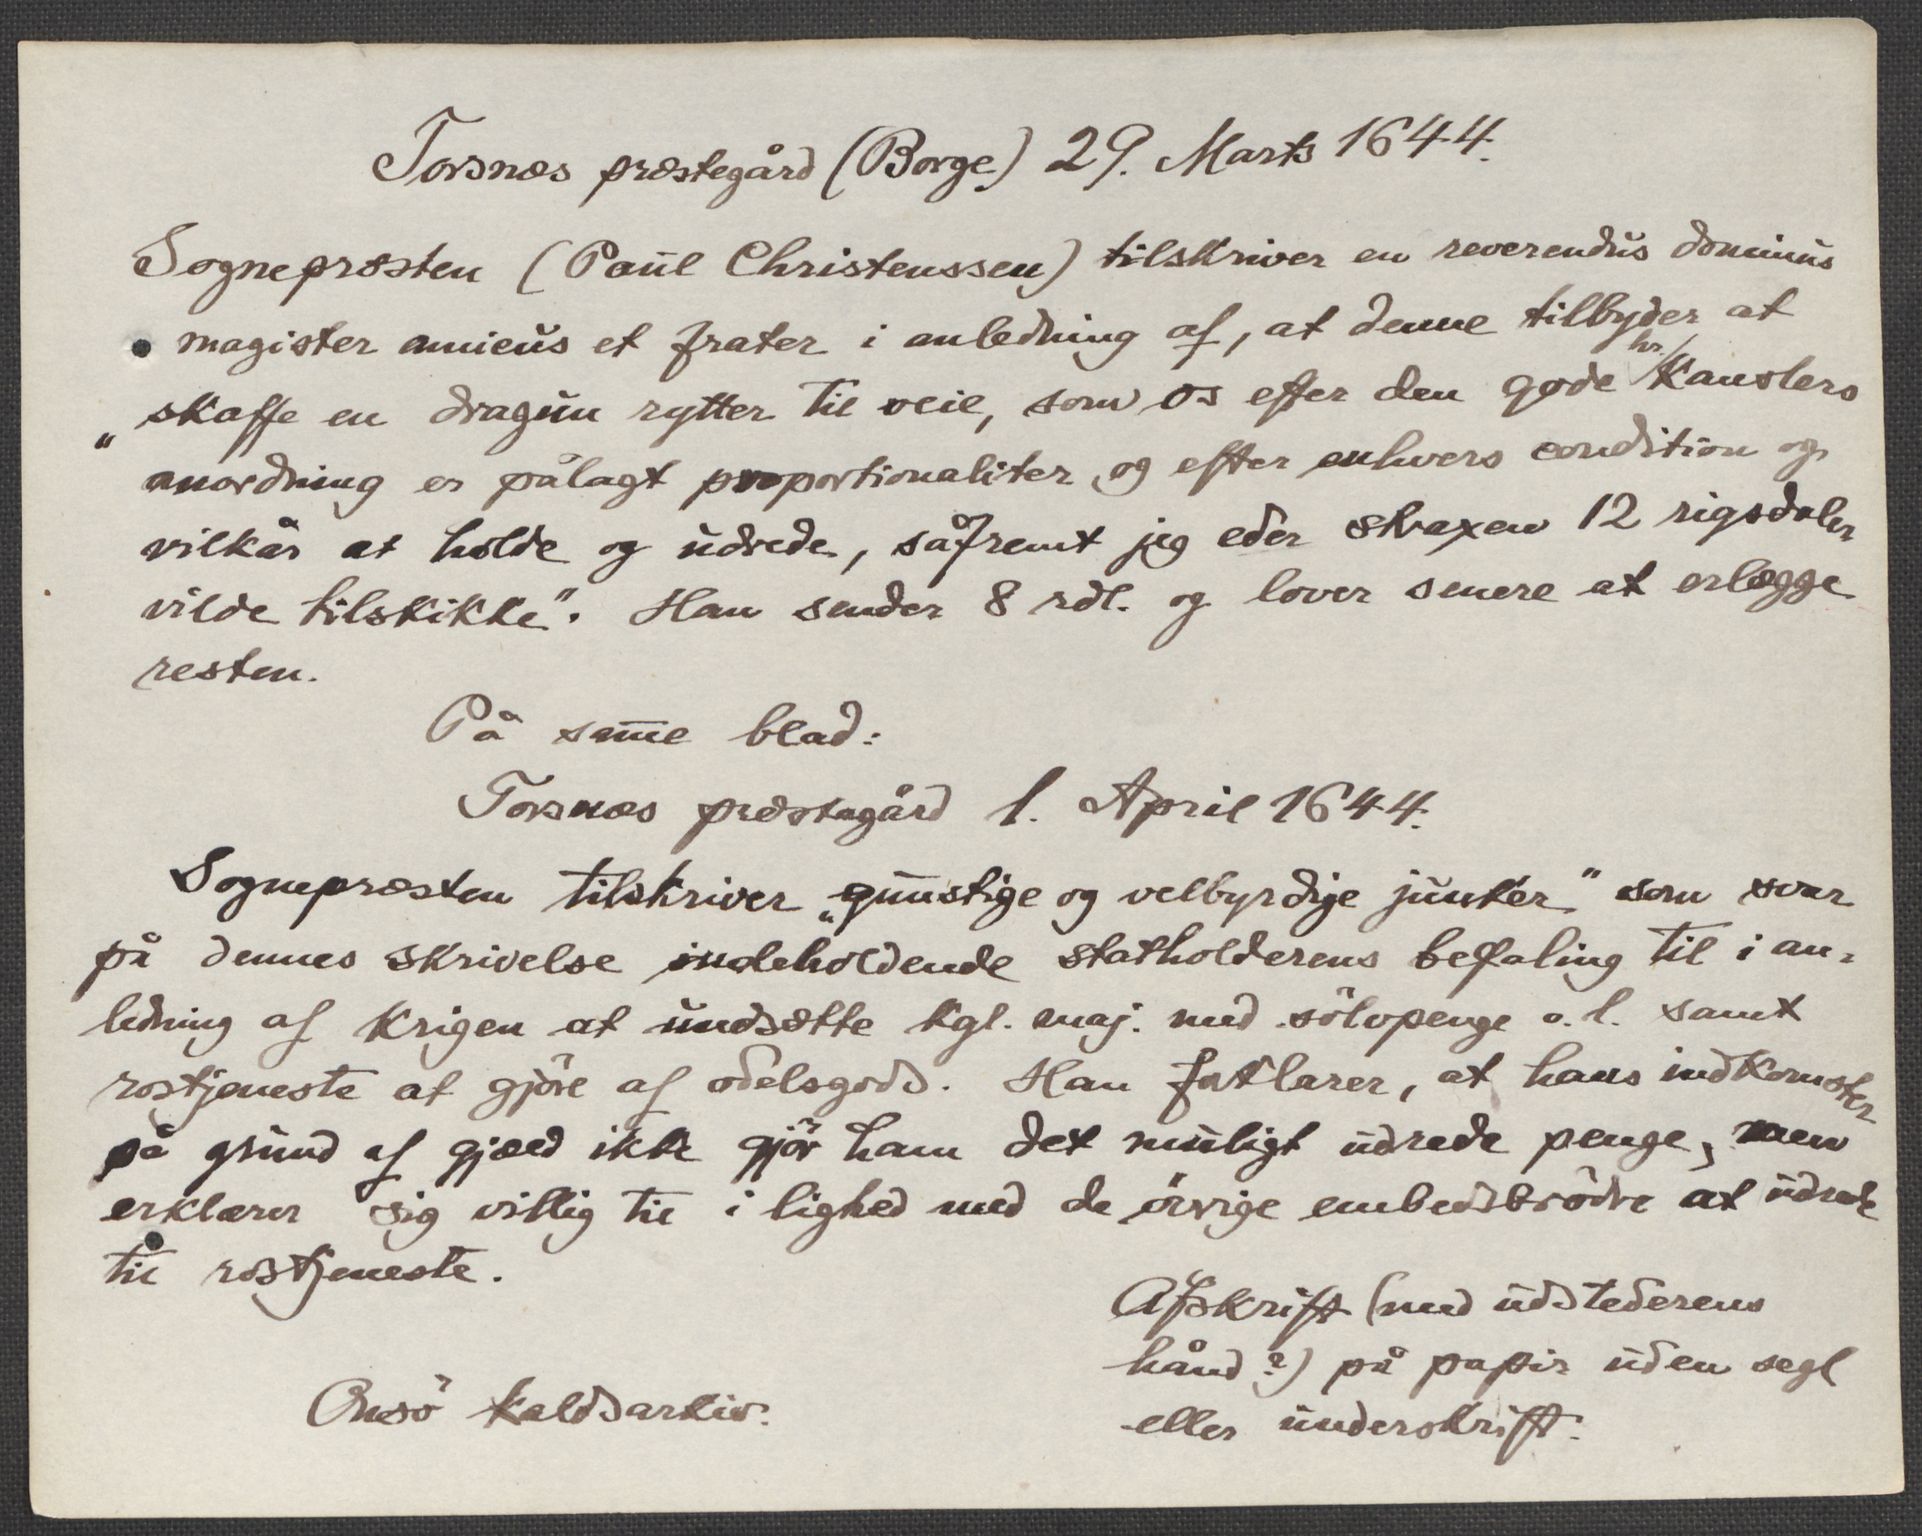 Torsnæs præstegård (Borge) 29. Marts 1644.
Sognepræsten (Paul Christenssen) tilskriver en reverendus dominus
magister amicus et frater i anledning af, at denne tilbyder at
„skaffe en dragun rytter til veie, som os efter den gode hr. Kanslers
anordning er pålagt proportionaliter og efter enhvers condition og
vilkår at holde og udrede, såfremt jeg eder straxen 12 rigsdaler
vilde tilskikke". Han sender 8 rdl. og lover senere at erlægge
resten.
På samme blad:
Torsnæs præstegård 1. April 1644.
Sognepræsten tilskriver „gunstige og velbyrdige junker" som svar
på dennes skrivelse indeholdende statholderens befaling til i an-
ledning af Krigen at undsætte kgl. maj. med sölvpenge o. l. samt
rostjeneste at gjöre af odelsgods. Han forklarer, at hans indkomster
på grund af gjæld ikke gjör ham det muligt udrede penge, men
erklærer sig villig til i lighed med de övrige embedsbrödre at udrede
til rostjeneste.
Afskrift (med udstederens
hånd?) på papir uden segl
eller underskrift.
Onsö kaldsarkiv.